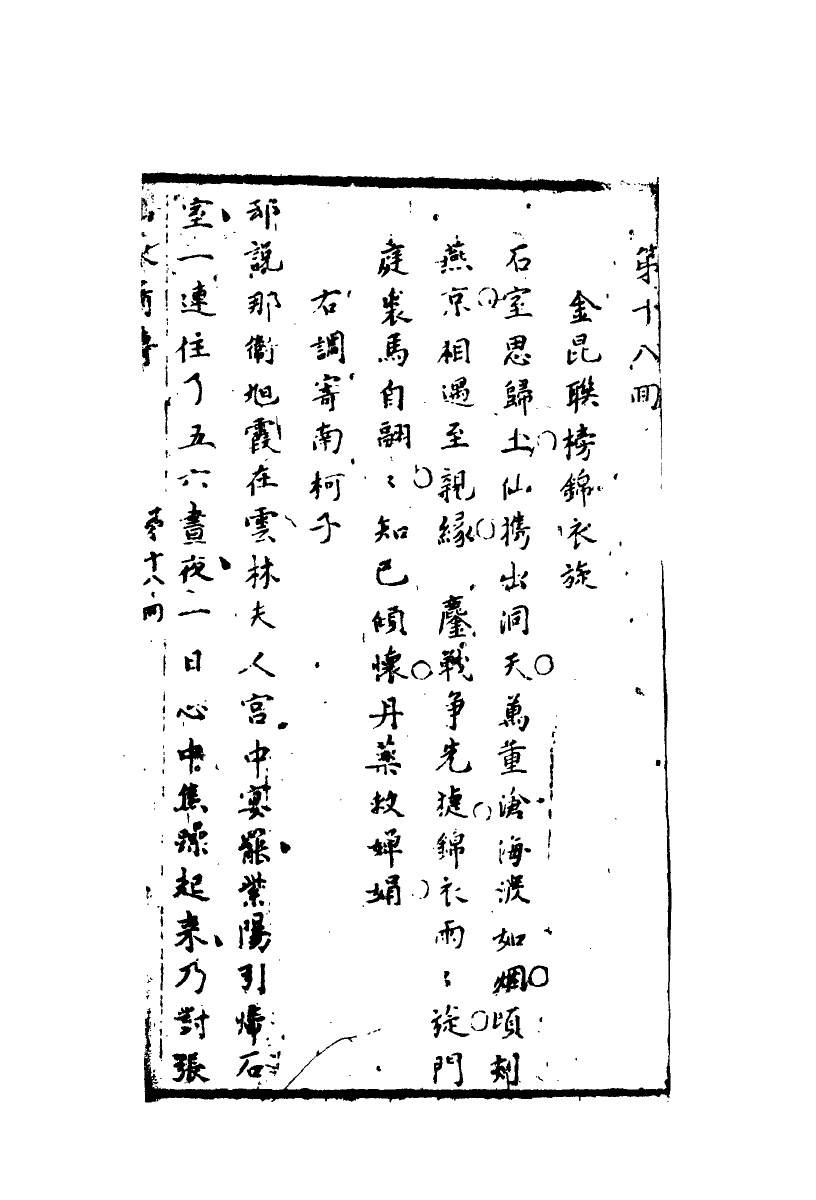 第十八回
金昆聯榜錦衣旋
石室思歸土仙携出洞天萬重滄海漲如烟頃刻
燕京相遇至親緣　鏖戰爭先捷錦衣兩〻旋門
庭裘馬自翩〻知已傾懷丹藥救嬋娟
右調寄南柯子
却說那衞旭霞在雲林夫人宮中宴罷紫陽引歸石
室一連住了五六晝夜一日心中焦躁起来乃對張
第十八回